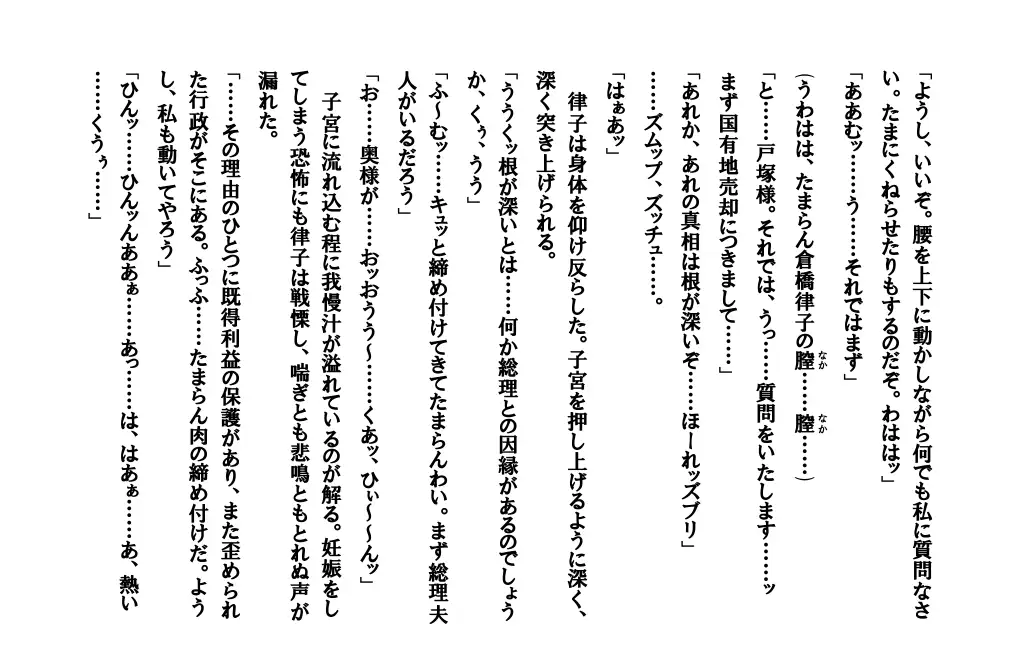 「ようし、いいぞ。腰を上下に動かしながら何でも私に質問なさ
い。たまにくねらせたりもするのだぞ。わははッ」
「ああむッ……う……それではまず」
（うわはは、たまらん倉橋律子の膣……膣……）
なか
なか
「と……戸塚様。それでは、うっ……質問をいたします……ッ
まず国有地売却につきまして……」
「あれか、あれの真相は根が深いぞ……ほーれッズブリ」
……ズムップ、ズッチュ……。
「はぁあッ」
　律子は身体を仰け反らした。子宮を押し上げるように深く、
深く突き上げられる。
「ううくッ根が深いとは……何か総理との因縁があるのでしょう
か、くぅ、うう」
「ふ～むッ……キュッと締め付けてきてたまらんわい。まず総理夫
人がいるだろう」
「お……奥様が……おッおうう～……くあッ、ひぃ～～んッ」
　子宮に流れ込む程に我慢汁が溢れているのが解る。妊娠をし
てしまう恐怖にも律子は戦慄し、喘ぎとも悲鳴ともとれぬ声が
漏れた。
「……その理由のひとつに既得利益の保護があり、また歪められ
た行政がそこにある。ふっふ……たまらん肉の締め付けだ。よう
し、私も動いてやろう」
「ひんッ……ひんッんああぁ……あっ……は、はあぁ……あ、熱い
……くうぅ……」